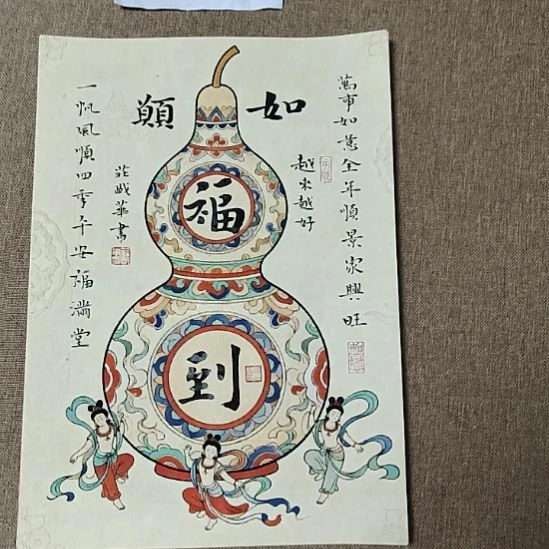 萬事如意全年順景家興旺
越來越好
如願
福
到
莊 華書
一帆風順四季平安福滿堂